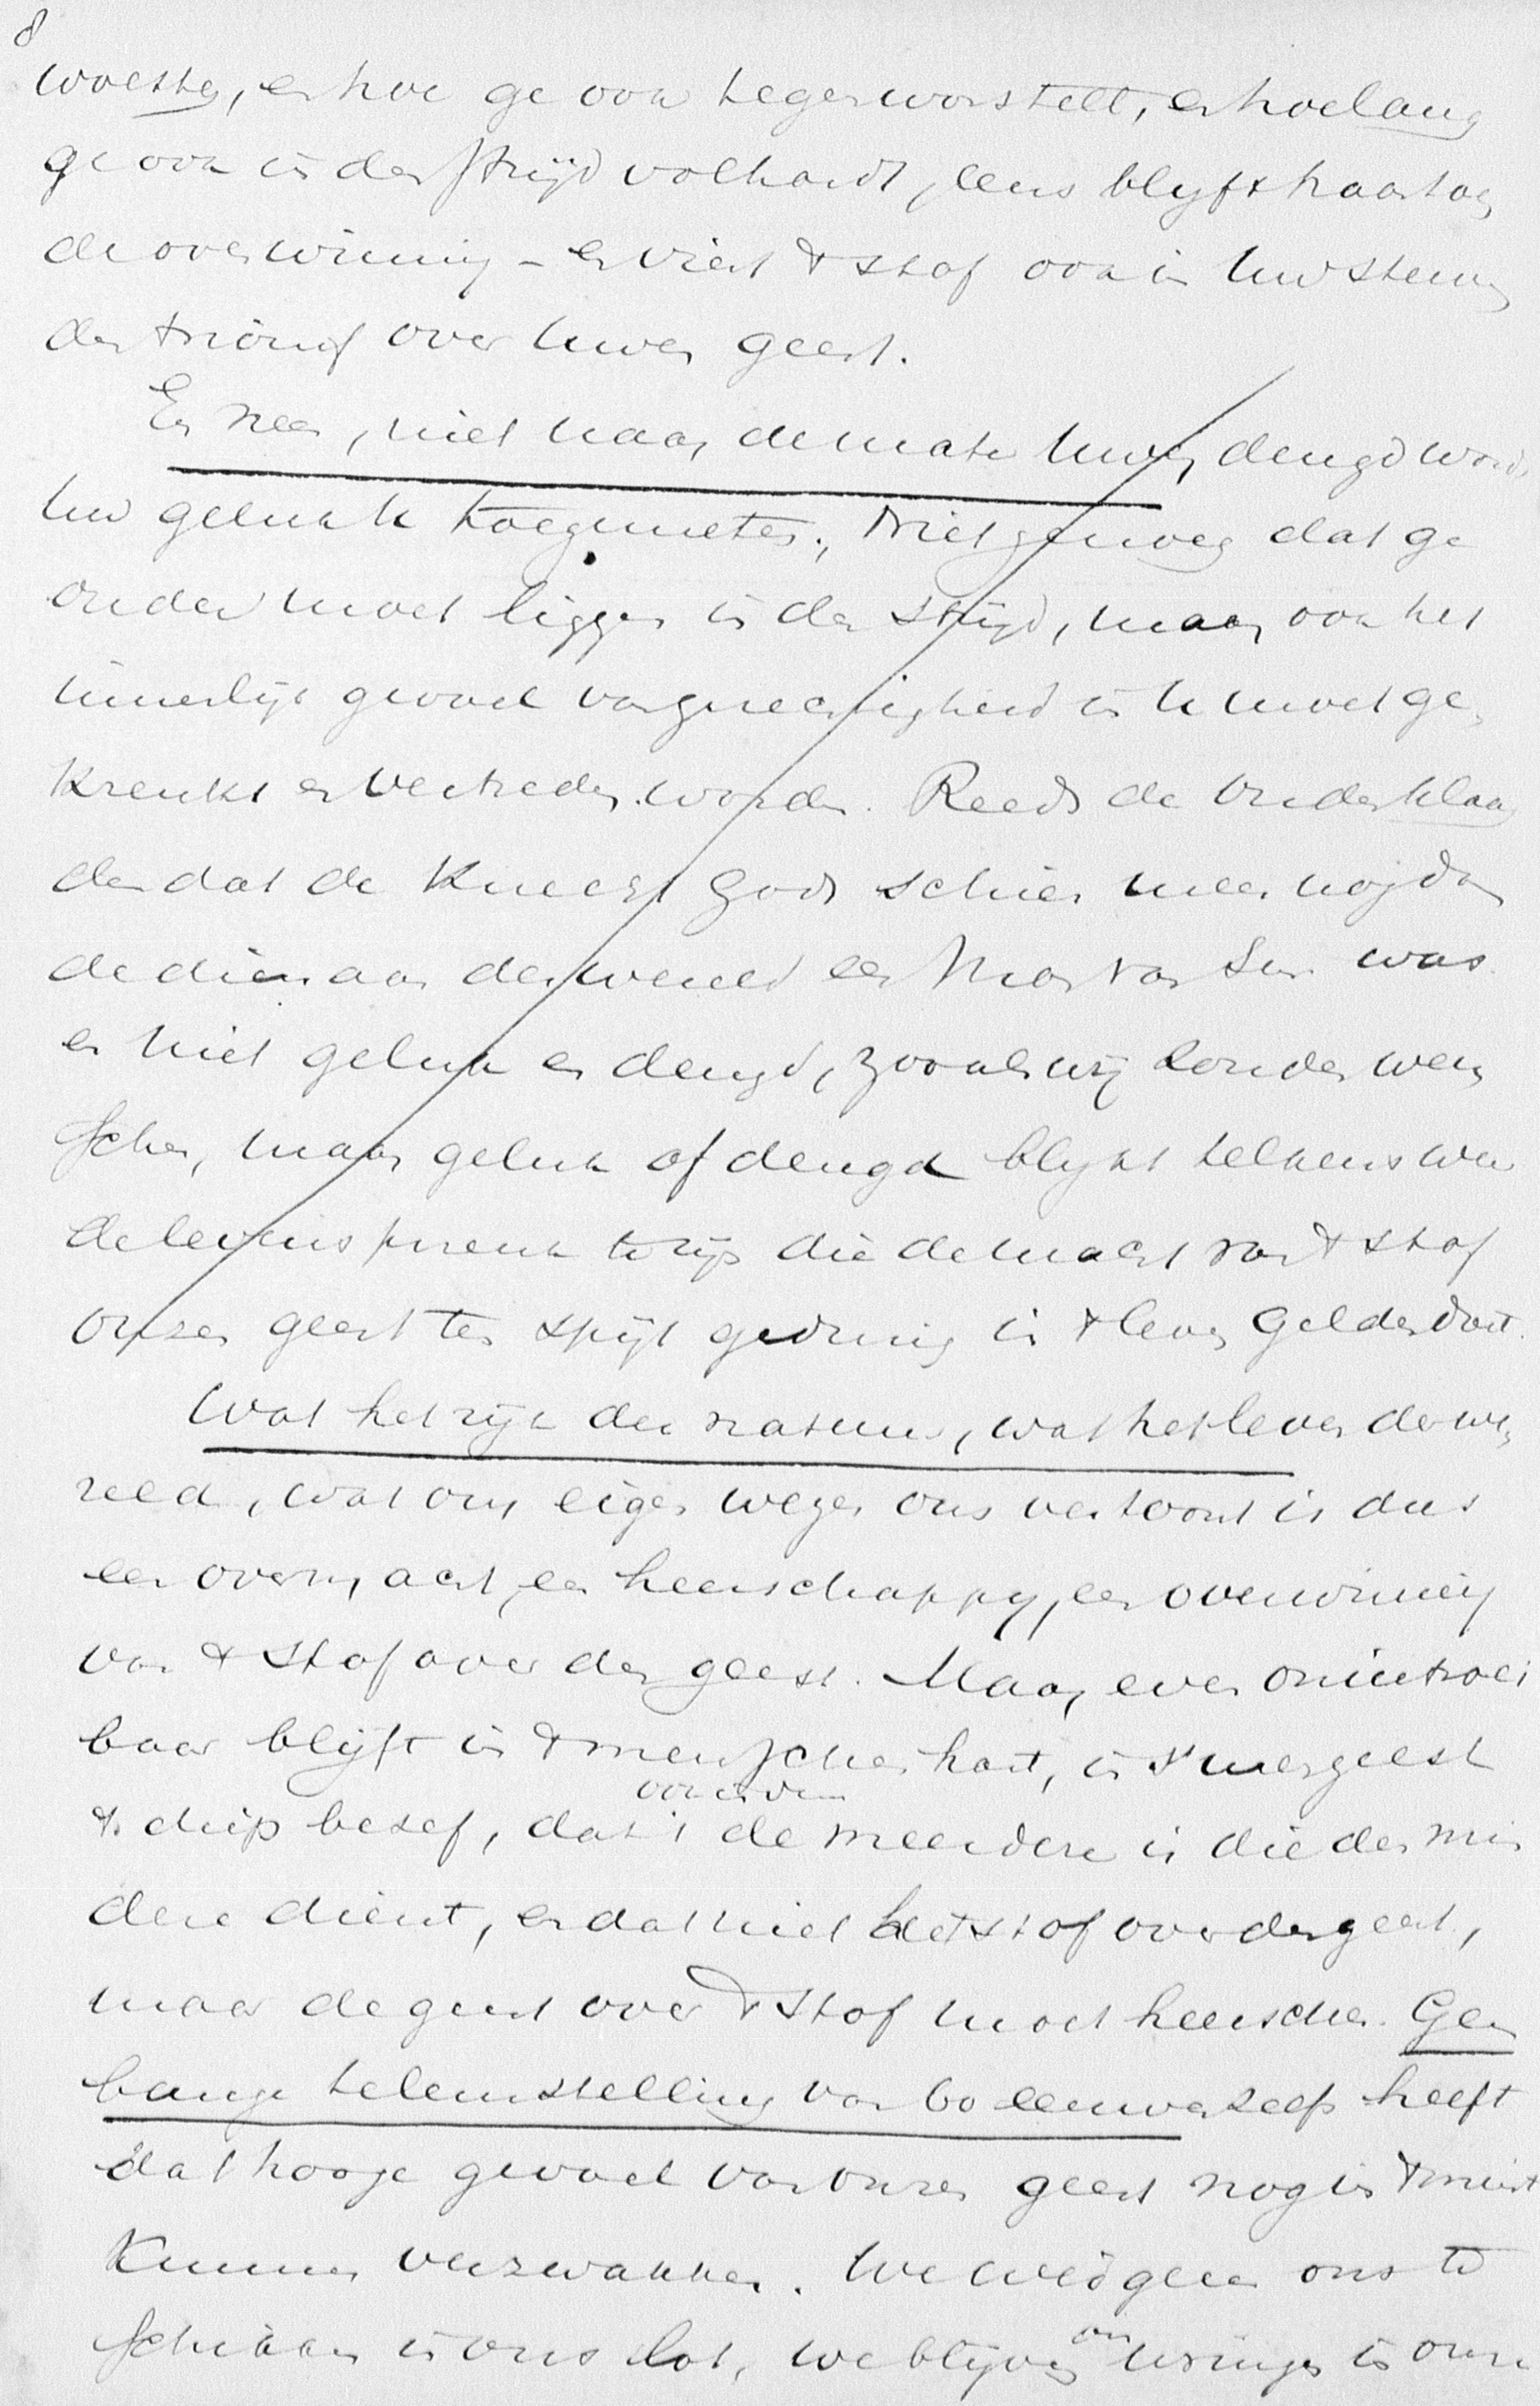 8
woeste, en hoe ge ook tegenworstelt, en hoelang
ge ook in den strijd volhardt, eens blyft haar toch
de overwinning – en viert 't stof ook in Uw sterven
den triomf over Uwen geest.
En neen, niet naar de mate Uwer deugd wordt
Uw geluk U toegemeten. Niet genoeg dat ge
onder moet liggen in den strijd, maar ook het
innerlijk gevoel van gerechtigheid in U moet ge-
krenkt en vertreden worden. Reeds de Ouden klaag
den dat de Knecht Gods schier meer nog dan
de dienaar der wereld een Man van Sm. was
en niet geluk en deugd, zooals wij zouden wen
schen, maar geluk of deugd blykt telkens weer
de levensspreuk te zijn die de macht van 't stof
onzen geest ten spijt geduring in 't leven gelden doet.
Wat het rijk der natuur, wat het leven der we
reld, wat ons eigen wezen ons vertoont is dus
een overmacht, een heerschappy, een overwinning
van 't stof over den geest. Maar even onuitroei
baar blijft in 't menschenhart, in 's menschen geest
't diep besef, dat 't de meerdere is die den min
dere dient, en dat niet het stof over den geest,
maar de geest over 't stof moet heerschen. Geen
bange teleurstelling van 60 eeuwen zelfs heeft
dat hooge gevoel van onzen geest nog in 't minst
Kunnen verzwakken. We weigeren ons te
schikken in ons lot, we blijven ons wringen in onze